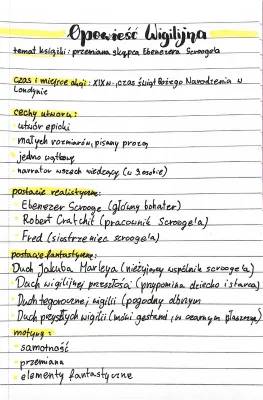 Opowieść Wigilijna
temat książki: przemiana skąpca Ebenezera Scrooge'a
czas i miejsce akcji: XIX w., czas świąt Bożego Narodzenia w
Londynie
cechy utworu:
utwór epicki
małych rozmiarów, pisany prozą
jedno wątkowy
narrator wszech wiedzący (w 3 osobie)
postacie realistyczne:
Ebenezer Scrooge (główny bohater)
Robert Cratchit (pracownik Scrooge'a)
Fred (siostrzeniec scrooge'a)
postacie fantastyczne:
Duch Jakuba Marleya (nieżyjący wspólnik scrooge'a)
Duch wigilijnej przeszłości (przypomina dziecko i starca)
Duch tegorocznej wigilii (pogodny olbrzym
Duch przyszłych wigilii (mówi gestami, w czarnym płaszczu)
motywy:
samotność
przemiana
elementy fantastyczne